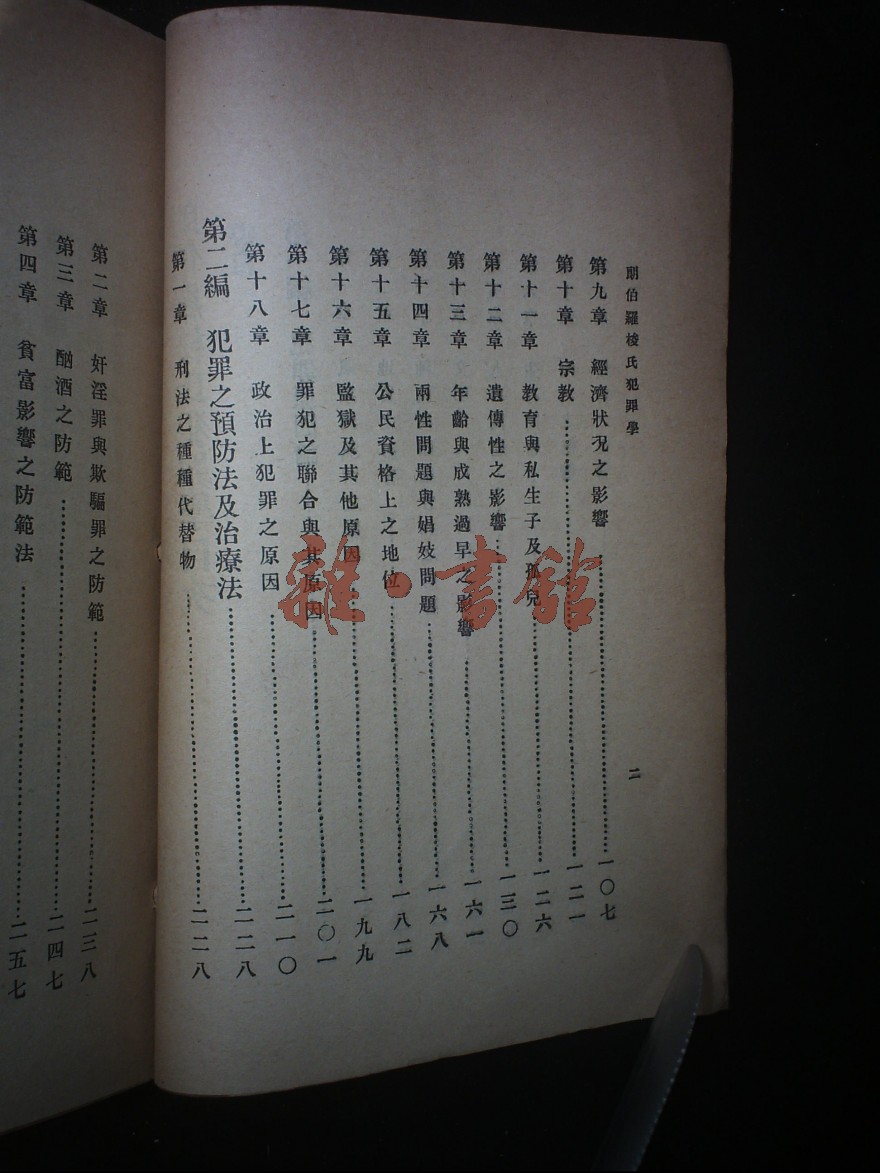 朋伯羅梭氏犯罪學
二
第九章 經濟狀況之影響……一〇七
第十章 宗教……一二一
第十一章 教育與私生子及孤兒……一二六
第十二章 遺傳性之影響……一三〇
第十三章 年齡與成熟過早之影響……一六一
第十四章 兩性問題與娼妓問題……一六八
第十五章 公民資格上之地位……一八二
第十六章 監獄及其他原因……一九九
第十七章 罪犯之聯合與其原因……二〇一
第十八章 政治上犯罪之原因……二一〇
第二編 犯罪之預防法及治療法……二二八
第一章 刑法之種種代替物……二二八
第二章 奸淫罪與欺騙罪之防範……二三八
第三章 酗酒之防範……二四七
第四章 貧富影響之防範法……二五七
雜·書館